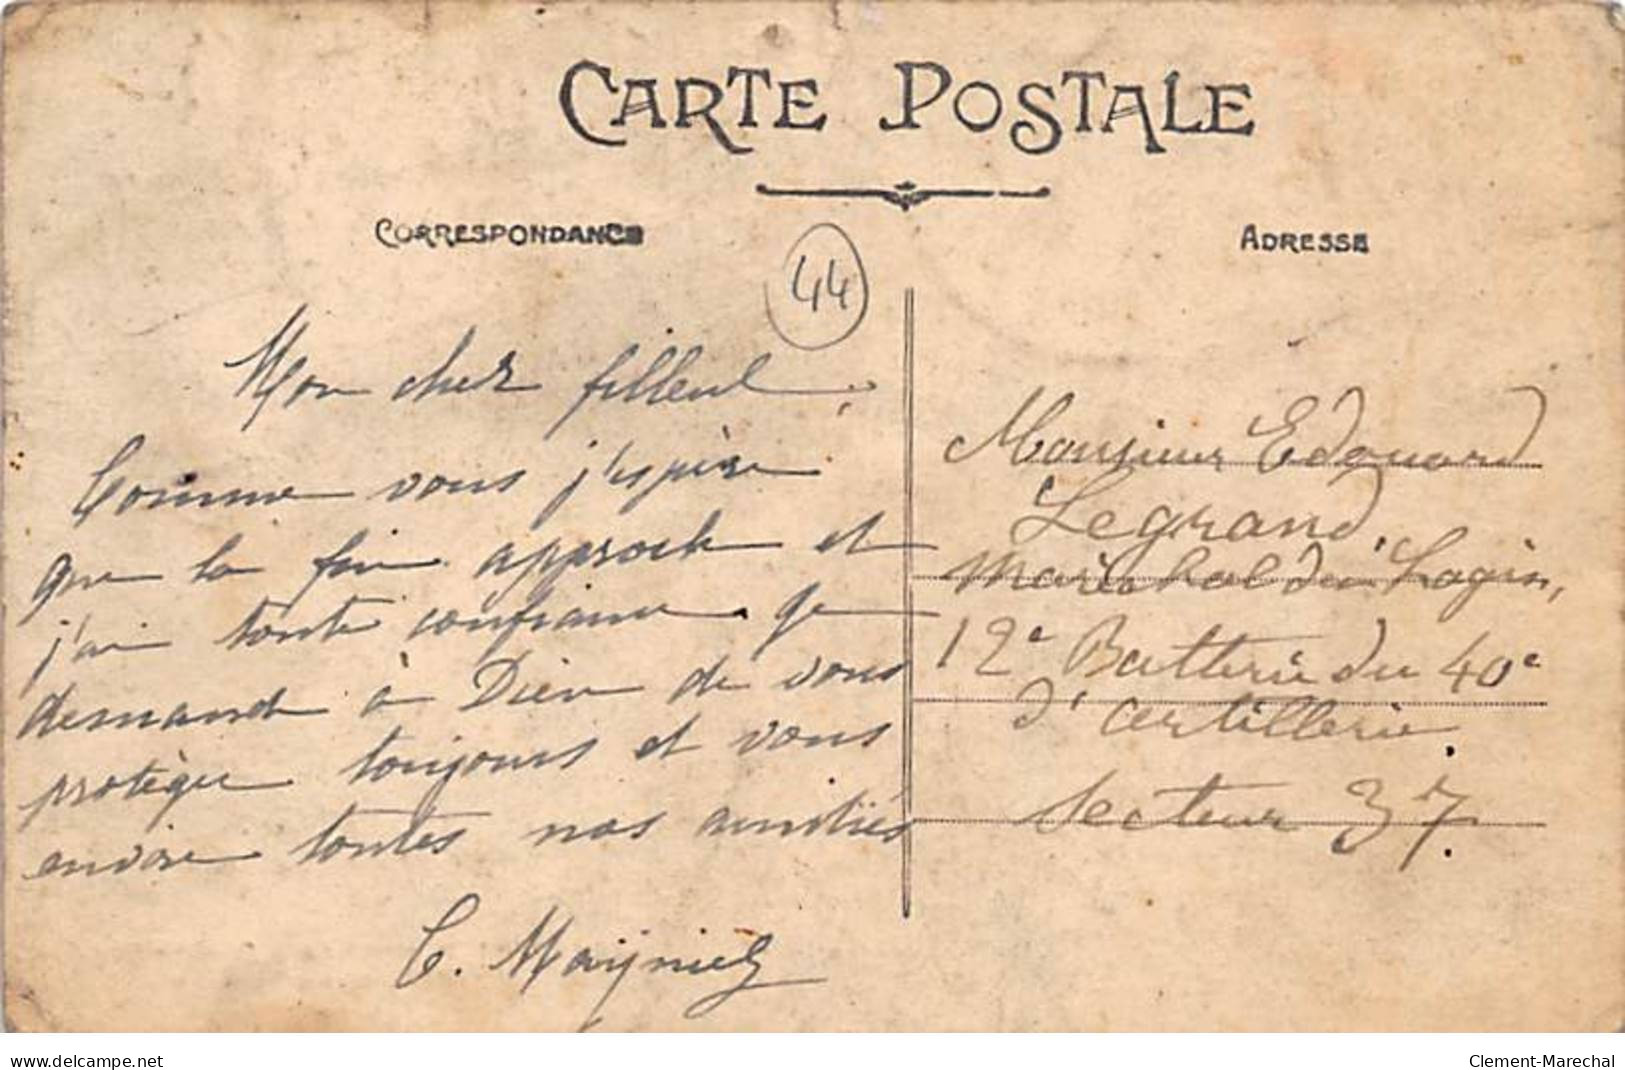 CARTE POSTALE
CORRESPONDANCE
ADRESSE
44
Mon cher filleul,
Comme vous j'espère
que la fin approche et
j'ai toute confiance. Je
demande à Dieu de vous
protéger toujours et vous
envoie toutes nos amitiés
C.
Monsieur Edouard
Legrand,
Maréchal des Logis,
12e Batterie du 40e
d'artillerie.
Secteur 37.
www.delcampe.net
Clement-Marechal